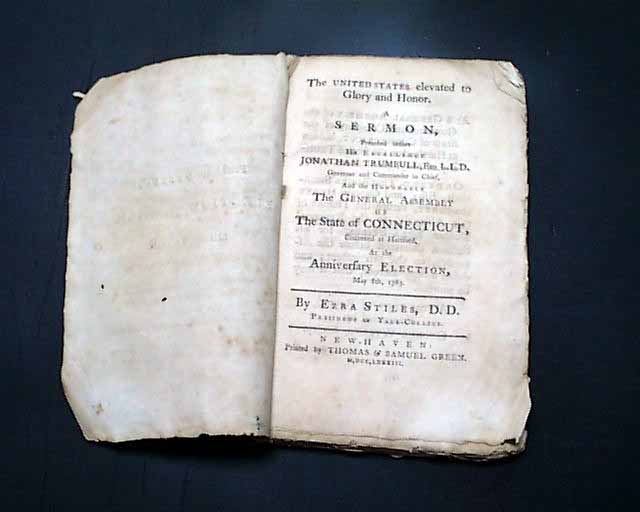 The UNITED STATES elevated to
Glory and Honor.
A
SERMON,
Preached before
His EXCELLENCY
JONATHAN TRUMBULL, Esq L.L.D.
Governor and Commander in Chief,
And the HONORABLE
The GENERAL ASSEMBLY
OF
The State of CONNECTICUT,
Convened at Hartford,
At the
Anniversary ELECTION,
May 8th, 1783.
By EZRA STILES, D.D.
PRESIDENT of YALE-COLLEGE.
NEW-HAVEN:
Printed by THOMAS & SAMUEL GREEN.
M,DCC,LXXXIII.